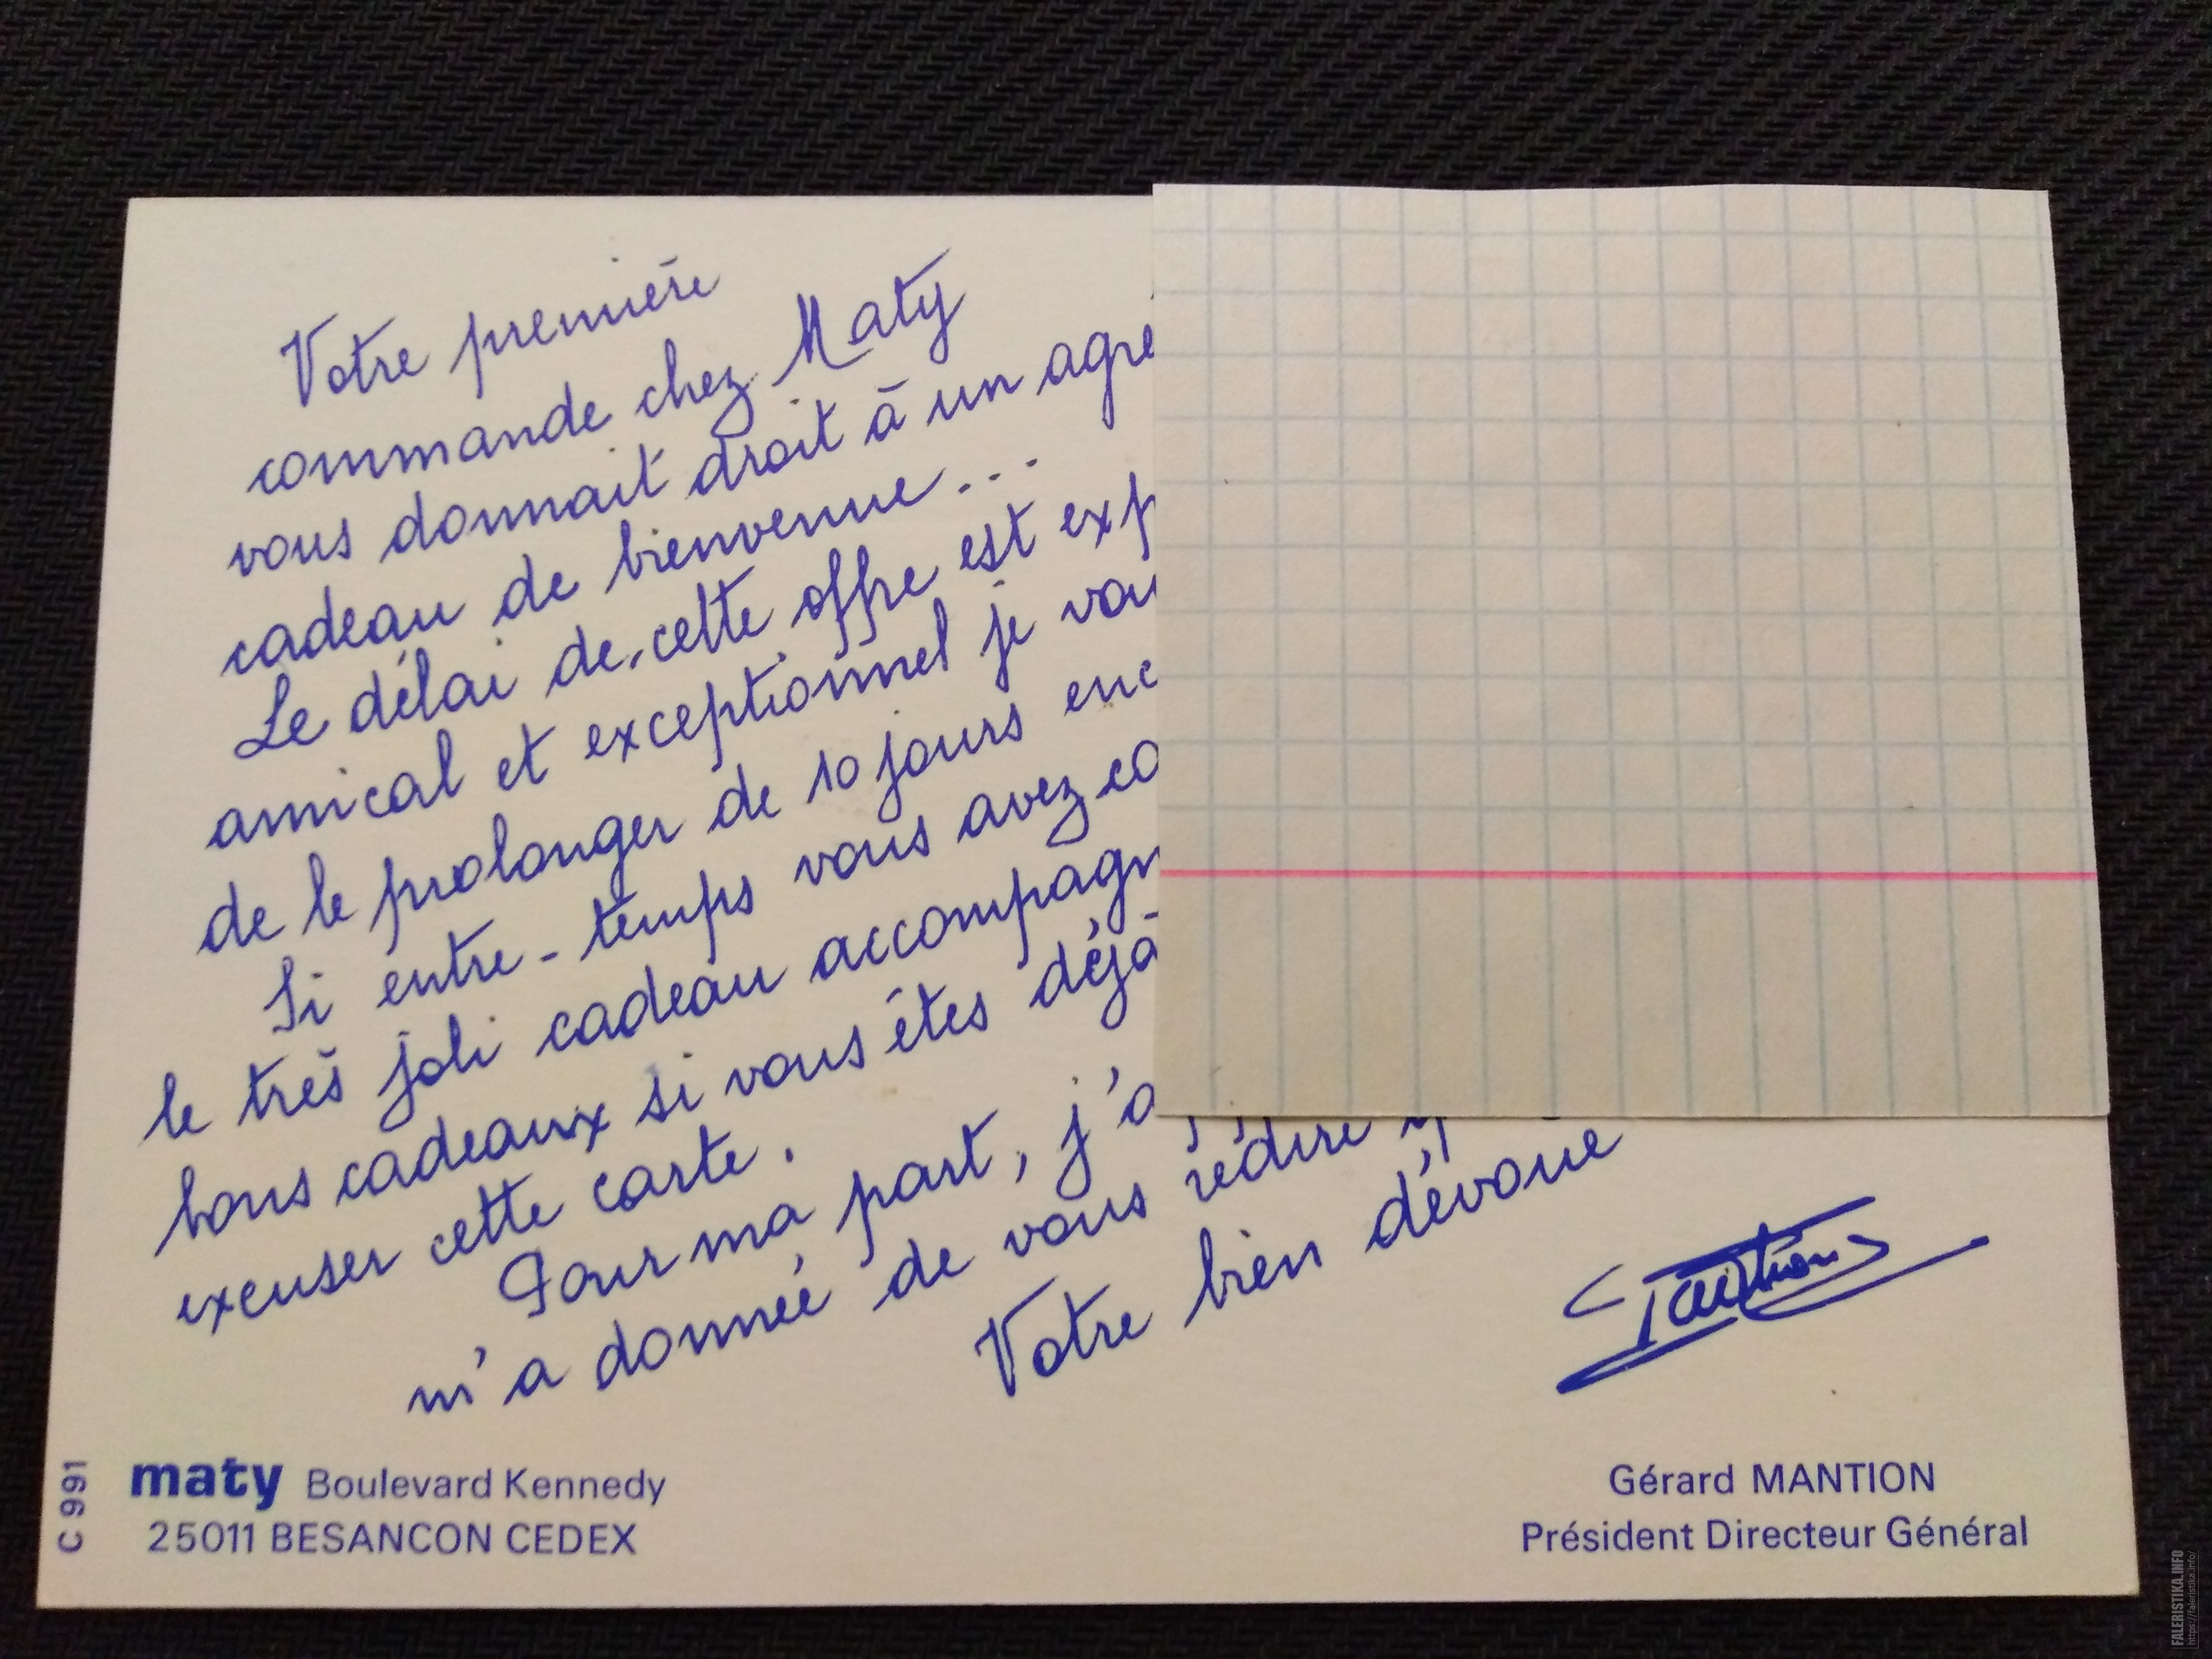 Votre première
commande chez Maty
vous donnait droit à un agré
cadeau de bienvenue...
Le délai de cette offre est exp
amical et exceptionnel je vou
de le prolonger de 10 jours enc
Si entre-temps vous avez co
le très joli cadeau accompagn
bons cadeaux si vous êtes déjà
excuser cette carte.
Pour ma part, j'a
m'a donnée de vous redire
Votre bien dévoué
Mantion
maty Boulevard Kennedy
25011 BESANCON CEDEX
C 991
Gérard MANTION
Président Directeur Général
FALERISTIKA.INFO
https://faleristika.info/